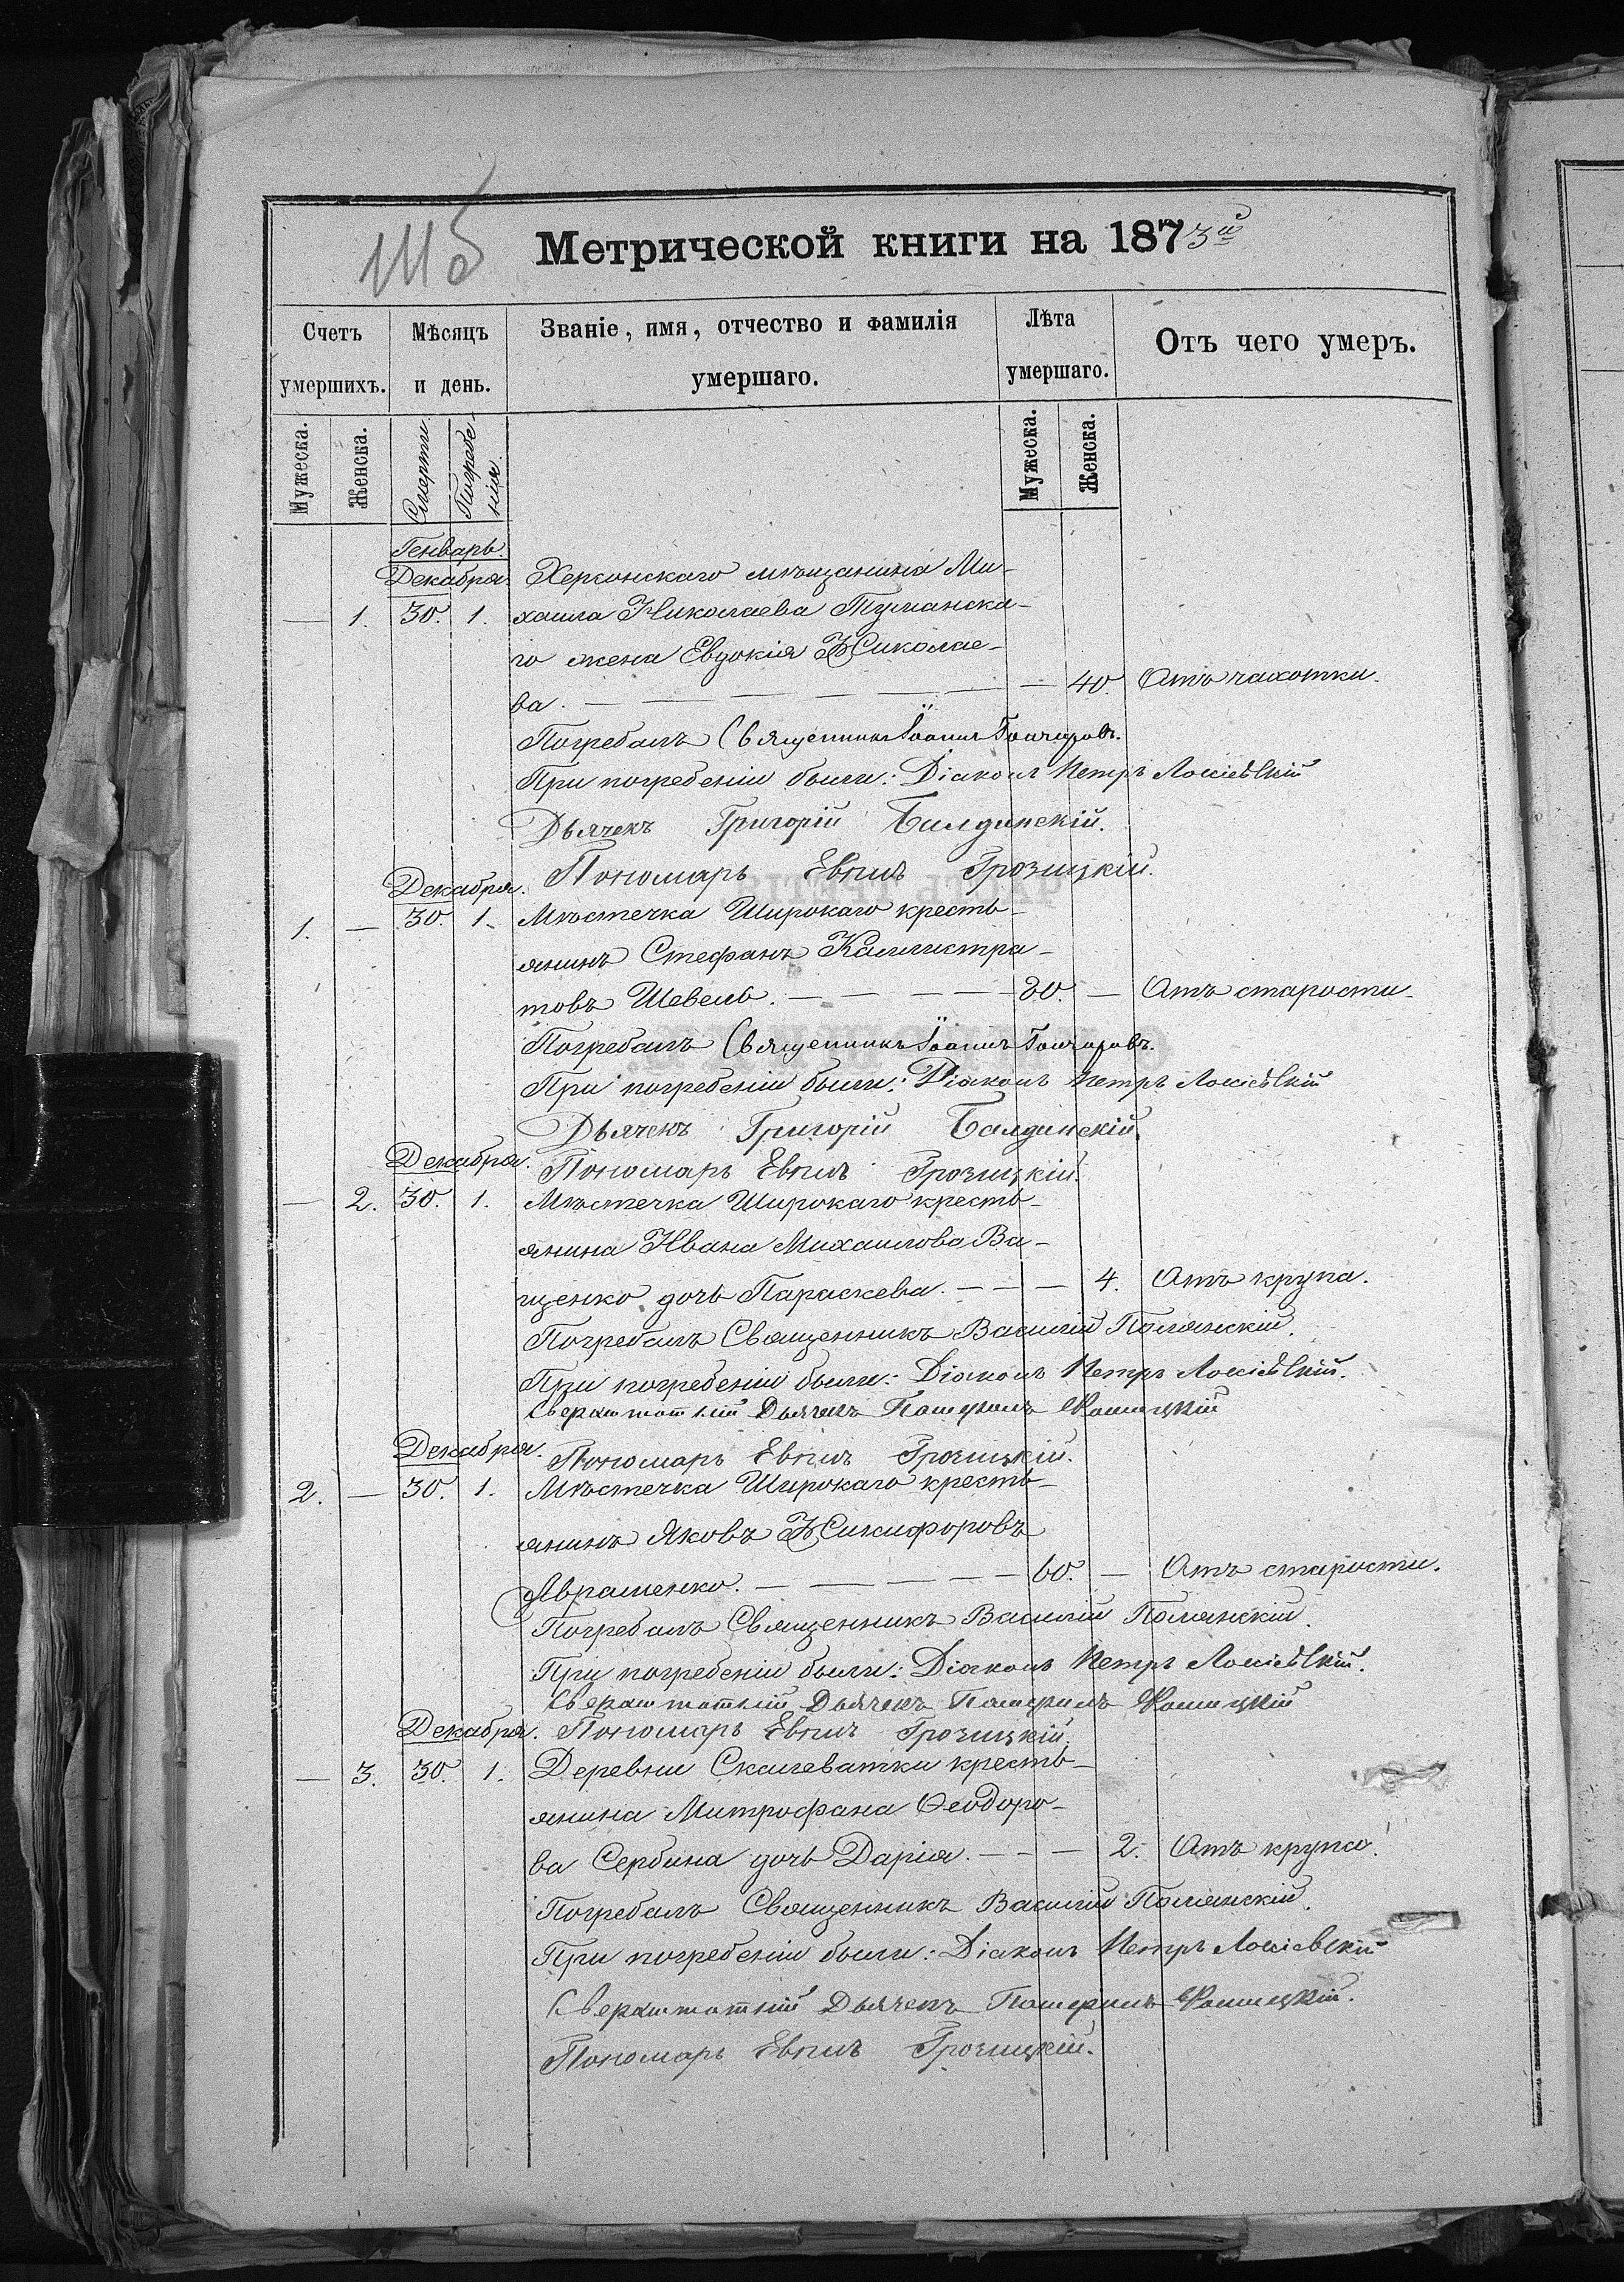 111б
Метрической книги на 1873й
Счетъ умершихъ.
Мѣсяцъ и день.
Званіе, имя, отчество и фамилія умершаго.
Лѣта умершаго.
Отъ чего умеръ.
Мужеска. Женска. Смерти. Погребенія. Мужеска. Женска.
Генварь.
Декабря. Херсонскаго мѣщанина Ми-
— 1. 30. 1. хаила Николаева Туманска-
го жена Евдокія Николае-
ва. — 40. Отъ чахотки.
Погребалъ Священникъ Іоаннъ Гончаровъ.
При погребеніи были: Діаконъ Петръ
Дьячекъ Григорій Балдинскій.
Пономарь Грозицкій.
Декабря.
1. — 30. 1. Мѣстечка Широкаго кресть-
янинъ Стефанъ Каллистра-
товъ Шевель. — 80. — Отъ старости.
Погребалъ Священникъ Іоаннъ Гончаровъ.
При погребеніи были: Діаконъ Петръ
Дьячекъ Григорій Балдинскій.
Декабря. Пономарь Грозицкій.
— 2. 30. 1. Мѣстечка Широкаго кресть-
янина Ивана Михаилова Ва-
щенко дочь Параскева. — 4. Отъ крупа.
Погребалъ Священникъ Василій Полянскій.
При погребеніи были: Діаконъ Петръ
Сверхштатный Дьячекъ
Декабря. Пономарь Грозицкій.
2. — 30. 1. Мѣстечка Широкаго кресть-
янинъ Яковъ Никифоровъ
Авраменко. — 60. — Отъ старости.
Погребалъ Священникъ Василій Полянскій.
При погребеніи были: Діаконъ Петръ
Сверхштатный Дьячекъ
Декабря. Пономарь Грозицкій.
— 3. 30. 1. Деревни Скалеватки кресть-
янина Митрофана Ѳеодоро-
ва Сербина дочь Дарія. — 2. Отъ крупа.
Погребалъ Священникъ Василій Полянскій.
При погребеніи были: Діаконъ Петръ
Сверхштатный Дьячекъ
Пономарь Грозицкій.